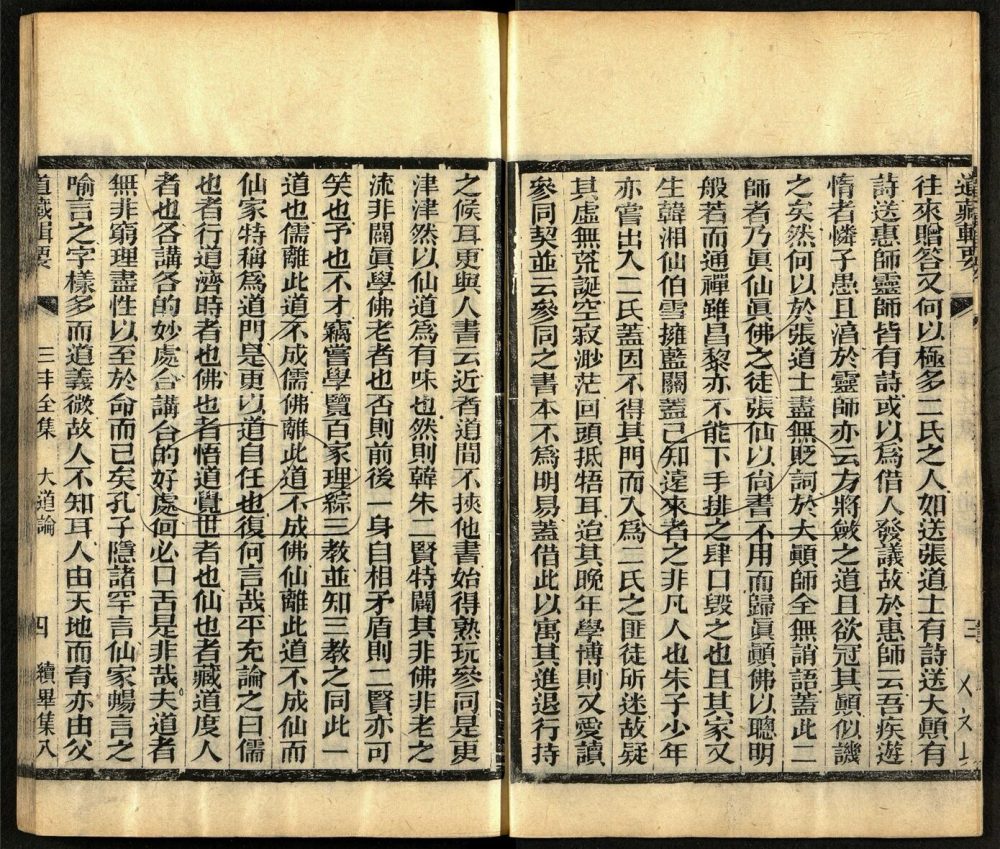 道藏輯要
往來贈答又何以極多二氏之人如送張道士有詩送大顚有
詩送惠師靈師皆有詩或以爲借人發議故於惠師云吾疾遊
惰者憐子愚且滀於靈師亦云方將斂之道且欲冠其顚似譏
之矣然何以於張道士盡無貶詞於大顚師全無誚語蓋此二
師者乃眞仙眞佛之徒張仙以尙書不用而歸眞顚佛以聰明
般若而通禪雖昌黎亦不能下手排之肆口毀之也且其家又
生韓湘仙伯雪擁藍關蓋已知遠來者之非凡人也朱子少年
亦嘗出入二氏蓋因不得其門而入爲二氏之匪徒所迷故疑
其虛無荒誕空寂渺茫回頭抵牾耳迨其晚年學博則又愛讀
參同契並云參同之書本不爲明易蓋借此以寓其進退行持
之候耳更與人書云近者道間不挾他書始得熟玩參同是更
津津然以仙道爲有味也然則韓朱二賢特闢其非佛非老之
流非闢眞學佛老者也否則前後一身自相矛盾則二賢亦可
笑也予也不才竊嘗學覽百家理綜三教並知三教之同此一
道也儒離此道不成儒佛離此道不成佛仙離此道不成仙而
仙家特稱爲道門是更以道自任也復何言哉平充論之曰儒
也者行道濟時者也佛也者悟道覺世者也仙也者藏道度人
者也各講各的妙處合講合的好處何必口舌是非哉夫道者
無非窮理盡性以至於命而已矣孔子隱諸罕言仙家暢言之
喻言之字樣多而道義微故人不知耳人由天地而育亦由父
道藏輯要 三丰全集 大道論 四 續畢集八